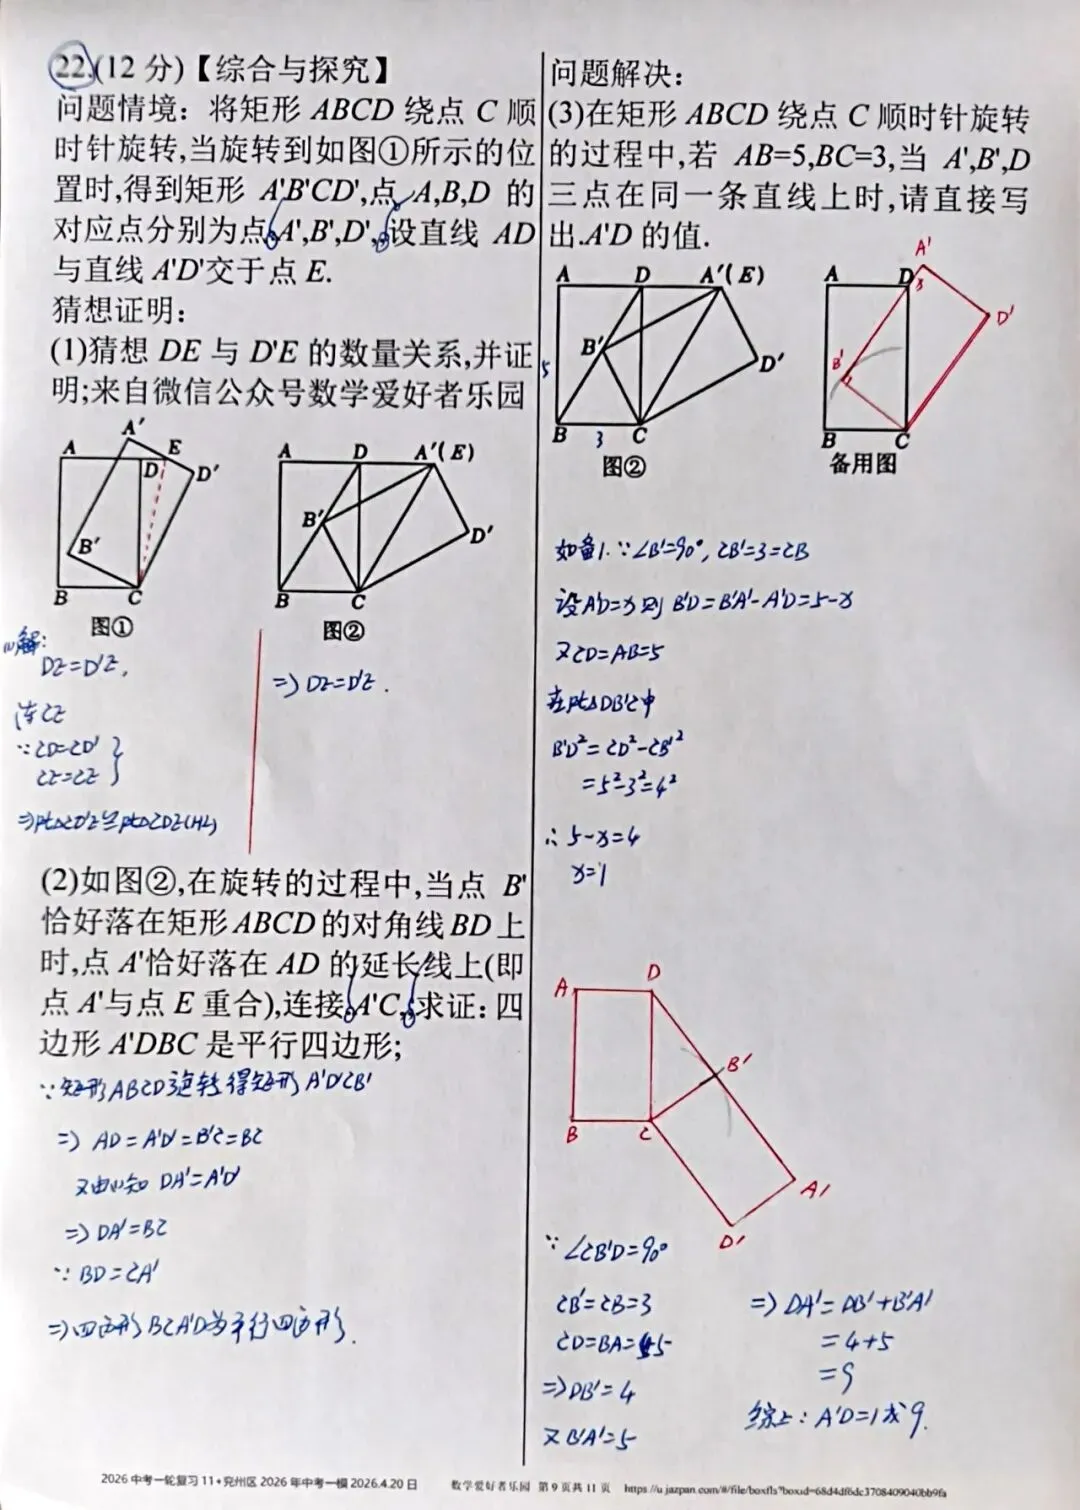 22.(12分)【综合与探究】
问题情境：将矩形 ABCD 绕点 C 顺
时针旋转,当旋转到如图①所示的位
置时,得到矩形 A'B'CD',点 A,B,D 的
对应点分别为点 A',B',D',设直线 AD
与直线 A'D'交于点 E.
猜想证明：
(1)猜想 DE 与 D'E 的数量关系,并证
明;来自微信公众号数学爱好者乐园
A' A E D D' B' B C
图①
A D A'(E) B' D' B C
图②
(1)解:
DE=D'E,
连CE
∵CD=CD'
CE=CE }
⇒Rt△CD'E≌Rt△CDE(HL)
⇒DE=D'E.
(2)如图②,在旋转的过程中,当点 B'
恰好落在矩形 ABCD 的对角线 BD 上
时,点 A'恰好落在 AD 的延长线上(即
点 A'与点 E 重合),连接 A'C,求证：四
边形 A'DBC 是平行四边形;
∵矩形ABCD旋转得矩形A'D'CB'
⇒ AD=A'D'=B'C=BC
又由(1)知 DA'=A'D'
⇒ DA'=BC
∵ BD=CA'
⇒四边形BCA'D为平行四边形.
问题解决：
(3)在矩形 ABCD 绕点 C 顺时针旋转
的过程中,若 AB=5,BC=3,当 A',B',D
三点在同一条直线上时,请直接写
出 A'D 的值.
A D A'(E) B' D' 5 B 3 C
图②
A' A D x D' B' B C
备用图
如备1.∵∠B'=90°,CB'=3=CB
设A'D=x则 B'D=B'A'-A'D=5-x
又CD=AB=5
在Rt△DB'C中
B'D²=CD²-CB'²
=5²-3²=4²
∴ 5-x=4
x=1
A D B' B C A' D'
∵∠CB'D=90°
CB'=CB=3
CD=BA=5
⇒DB'=4
又B'A'=5
⇒ DA'=DB'+B'A'
=4+5
=9
综上：A'D=1或9.
2026中考一轮复习11+兖州区2026年中考一模2026.4.20日 数学爱好者乐园 第9页共11页